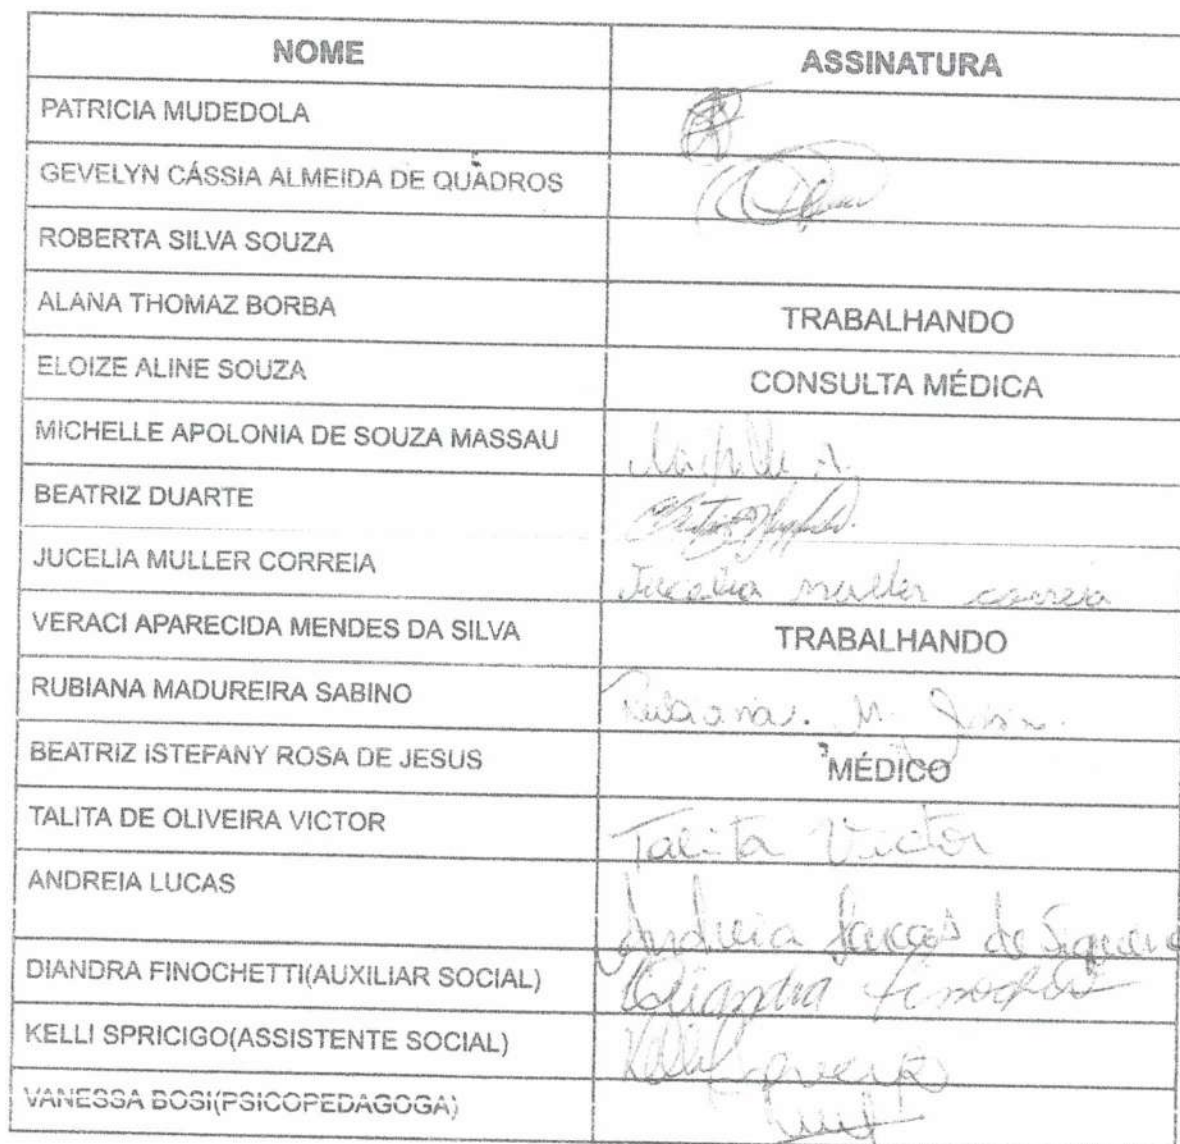 NOME ASSINATURA
PATRICIA MUDEDOLA
GEVELYN CÁSSIA ALMEIDA DE QUADROS
ROBERTA SILVA SOUZA
ALANA THOMAZ BORBA TRABALHANDO
ELOIZE ALINE SOUZA CONSULTA MÉDICA
MICHELLE APOLONIA DE SOUZA MASSAU Michelle A.
BEATRIZ DUARTE
JUCELIA MULLER CORREIA Jucelia muller correia
VERACI APARECIDA MENDES DA SILVA TRABALHANDO
RUBIANA MADUREIRA SABINO Rubiana. M.
BEATRIZ ISTEFANY ROSA DE JESUS MÉDICO
TALITA DE OLIVEIRA VICTOR Talita Victor
ANDREIA LUCAS Andreia Lucas de Siqueira
DIANDRA FINOCHETTI(AUXILIAR SOCIAL) Diandra
KELLI SPRICIGO(ASSISTENTE SOCIAL) Kelli
VANESSA BOSI(PSICOPEDAGOGA)